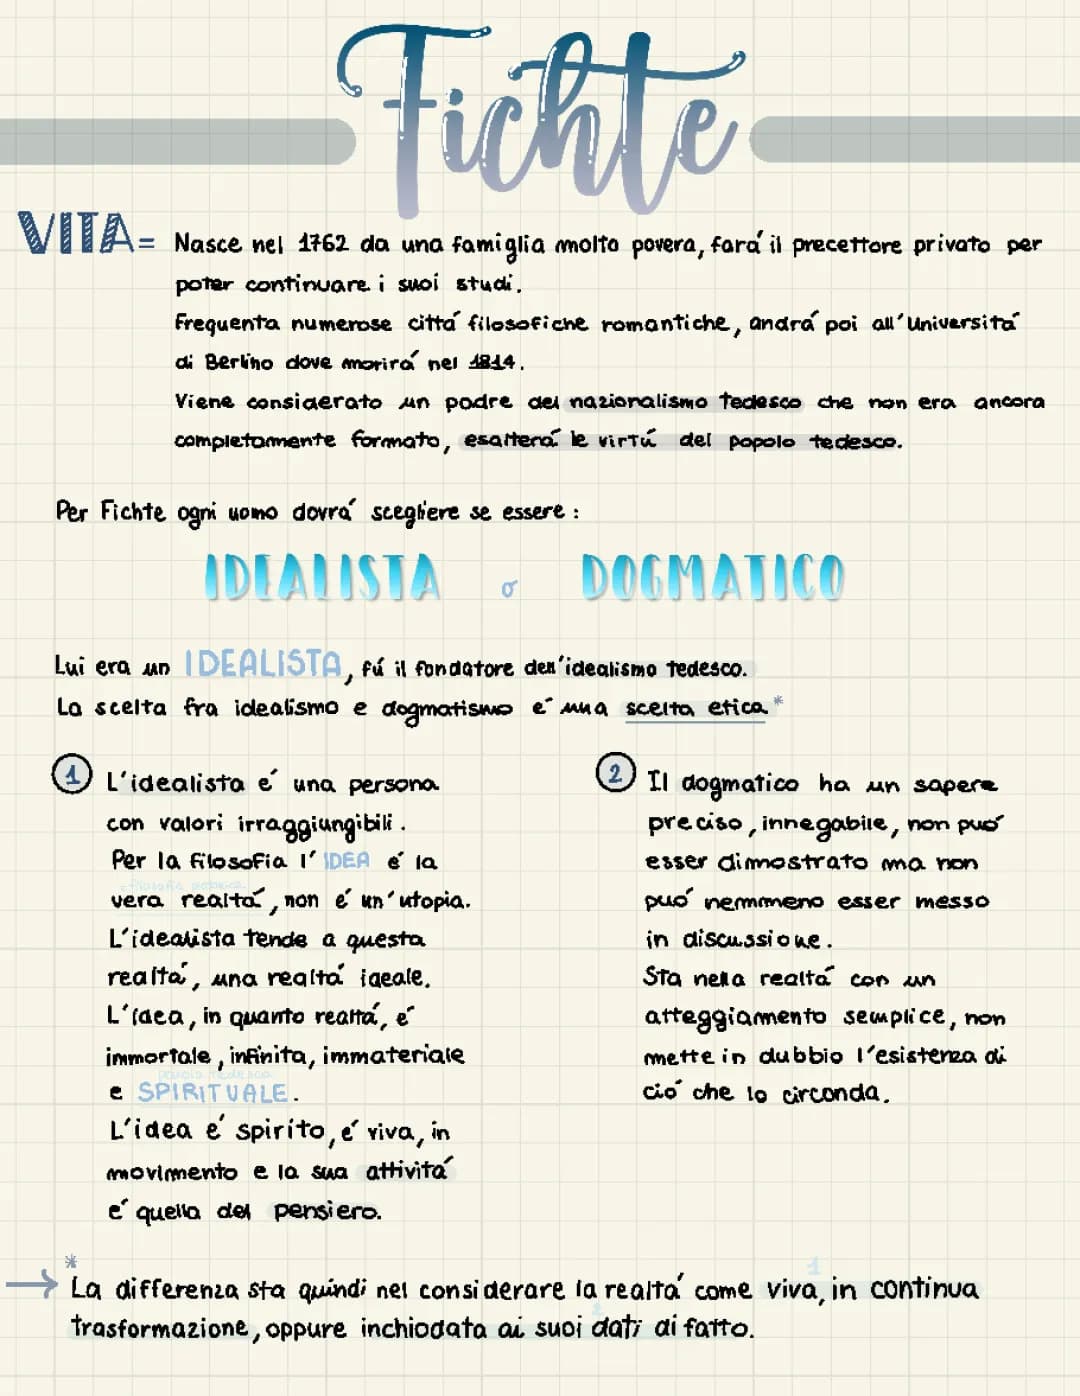 Fichte
VITA= Nasce nel 1762 da una famiglia molto povera, fará il precettore privato per
poter continuare i suoi studi.
Frequenta numerose cittá filosofiche romantiche, andrá poi all'Universitá
di Berlino dove morirá nel 1814.
Viene considerato un padre del nazionalismo tedesco che non era ancora
completamente formato, esalterá le virtú del popolo tedesco.
Per Fichte ogni uomo dovrá scegliere se essere:
IDEALISTA o DOGMATICO
Lui era un IDEALISTA, fú il fondatore dell'idealismo tedesco.
La scelta fra idealismo e dogmatismo é una scelta etica.*
1 L'idealista é una persona
con valori irraggiungibili.
Per la filosofia l'IDEA é la
vera realtá, non é un'utopia.
L'idealista tende a questa
realtá, una realtá ideale.
L'idea, in quanto realtá, é
immortale, infinita, immateriale
popolo tedesco
e SPIRITUALE.
L'idea é spirito, é viva, in
movimento e la sua attivitá
é quella del pensiero.
2 Il dogmatico ha un sapere
preciso, innegabile, non puó
esser dimostrato ma non
puó nemmeno esser messo
in discussione.
Sta nella realtá con un
atteggiamento semplice, non
mette in dubbio l'esistenza di
ció che lo circonda.
*
→ La differenza sta quindi nel considerare la realtá come viva, in continua
trasformazione, oppure inchiodata ai suoi dati di fatto.
1
2